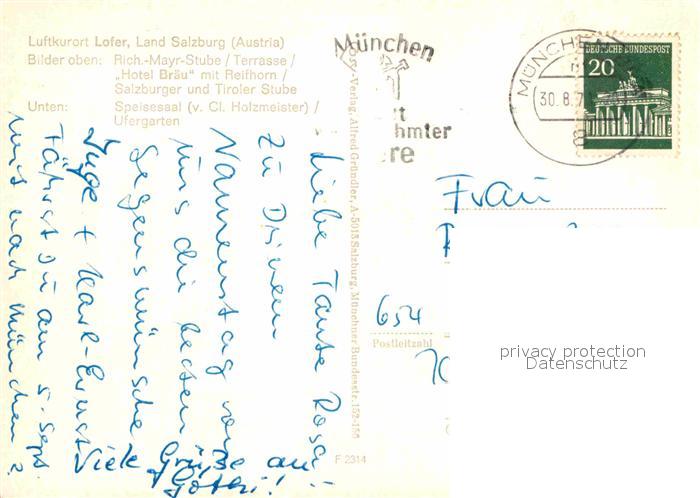 Luftkurort Lofer, Land Salzburg (Austria)
Bilder oben: Rich.-Mayr-Stube / Terrasse /
„Hotel Bräu" mit Reifhorn /
Salzburger und Tiroler Stube
Unten: Speisesaal (v. Cl. Holzmeister) /
Ufergarten
Liebe Tante Rosa!
Zu Deinem
Namenstag von
uns die besten
Segenswünsche
Inge + Karl-Ernst
Fährst Du am 5. Sept.
mit nach München?
Viele Grüße an
-Verlag Alfred Gründler, A-5013 Salzburg, Münchner Bundesstr. 152-156
F 2314
München
hmter
ere
MÜNCHEN
30.8.7
8
DEUTSCHE BUNDESPOST
20
Frau
654
Postleitzahl
privacy protection
Datenschutz